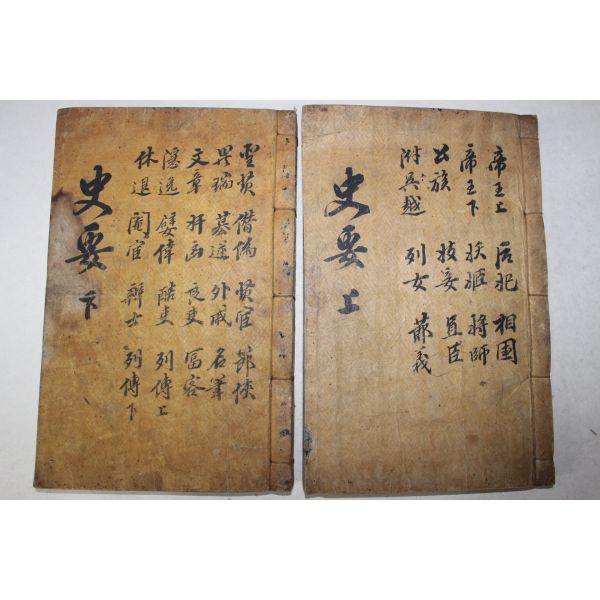 史要 上
帝王上 后妃 相国
帝王下 扶姬 将師
公族 技妾 直臣
附吳越 列女 節義
史要 下
聖賢 僭偽 賢宦 節俠
異瑞 墓逆 外戚 名筆
文章 奸凶 良吏 富客
隱逸 嬖倖 酷吏 列傳上
休退 閹宦 辯士 列傳下